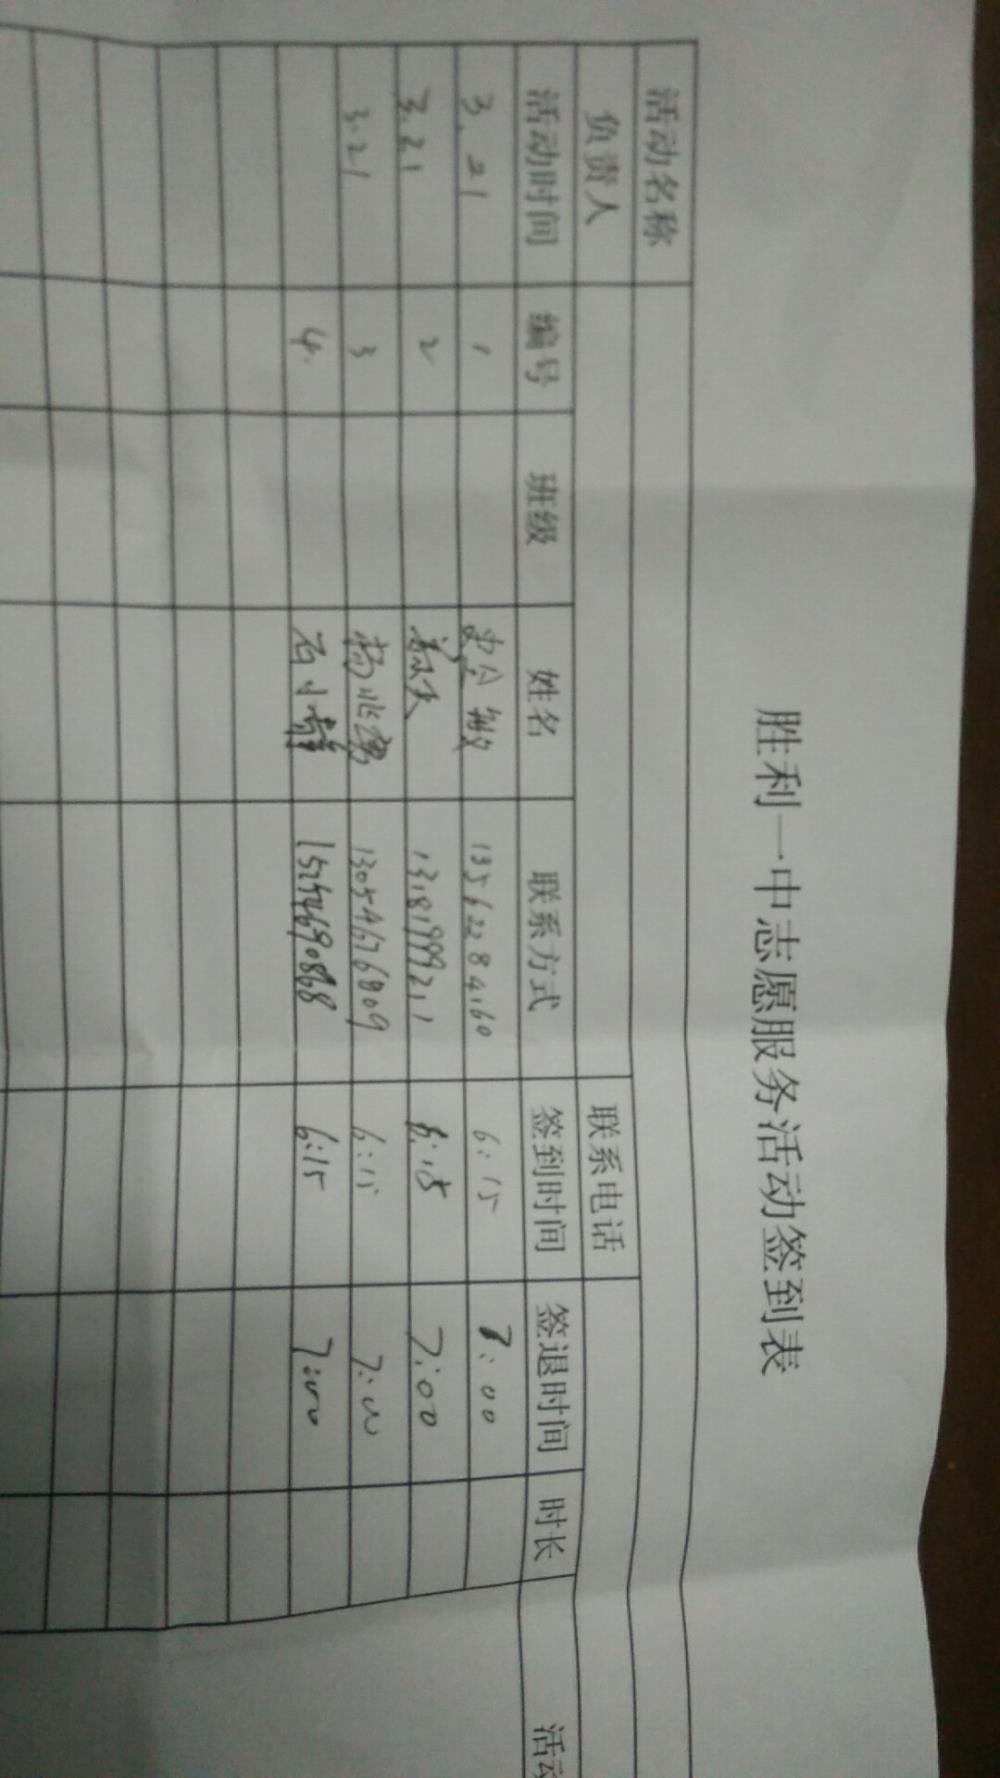 胜利一中志愿服务活动签到表
活动名称
负责人 联系电话
活动时间 编号 班级 姓名 联系方式 签到时间 签退时间 时长 活动
3.21 1 敏 13562284160 6:15 7:00
3.21 2 13181999211 6:15 7:00
3.21 3 杨兆勇 13054676809 6:15 7:00
4. 石小静 6:15 7:00